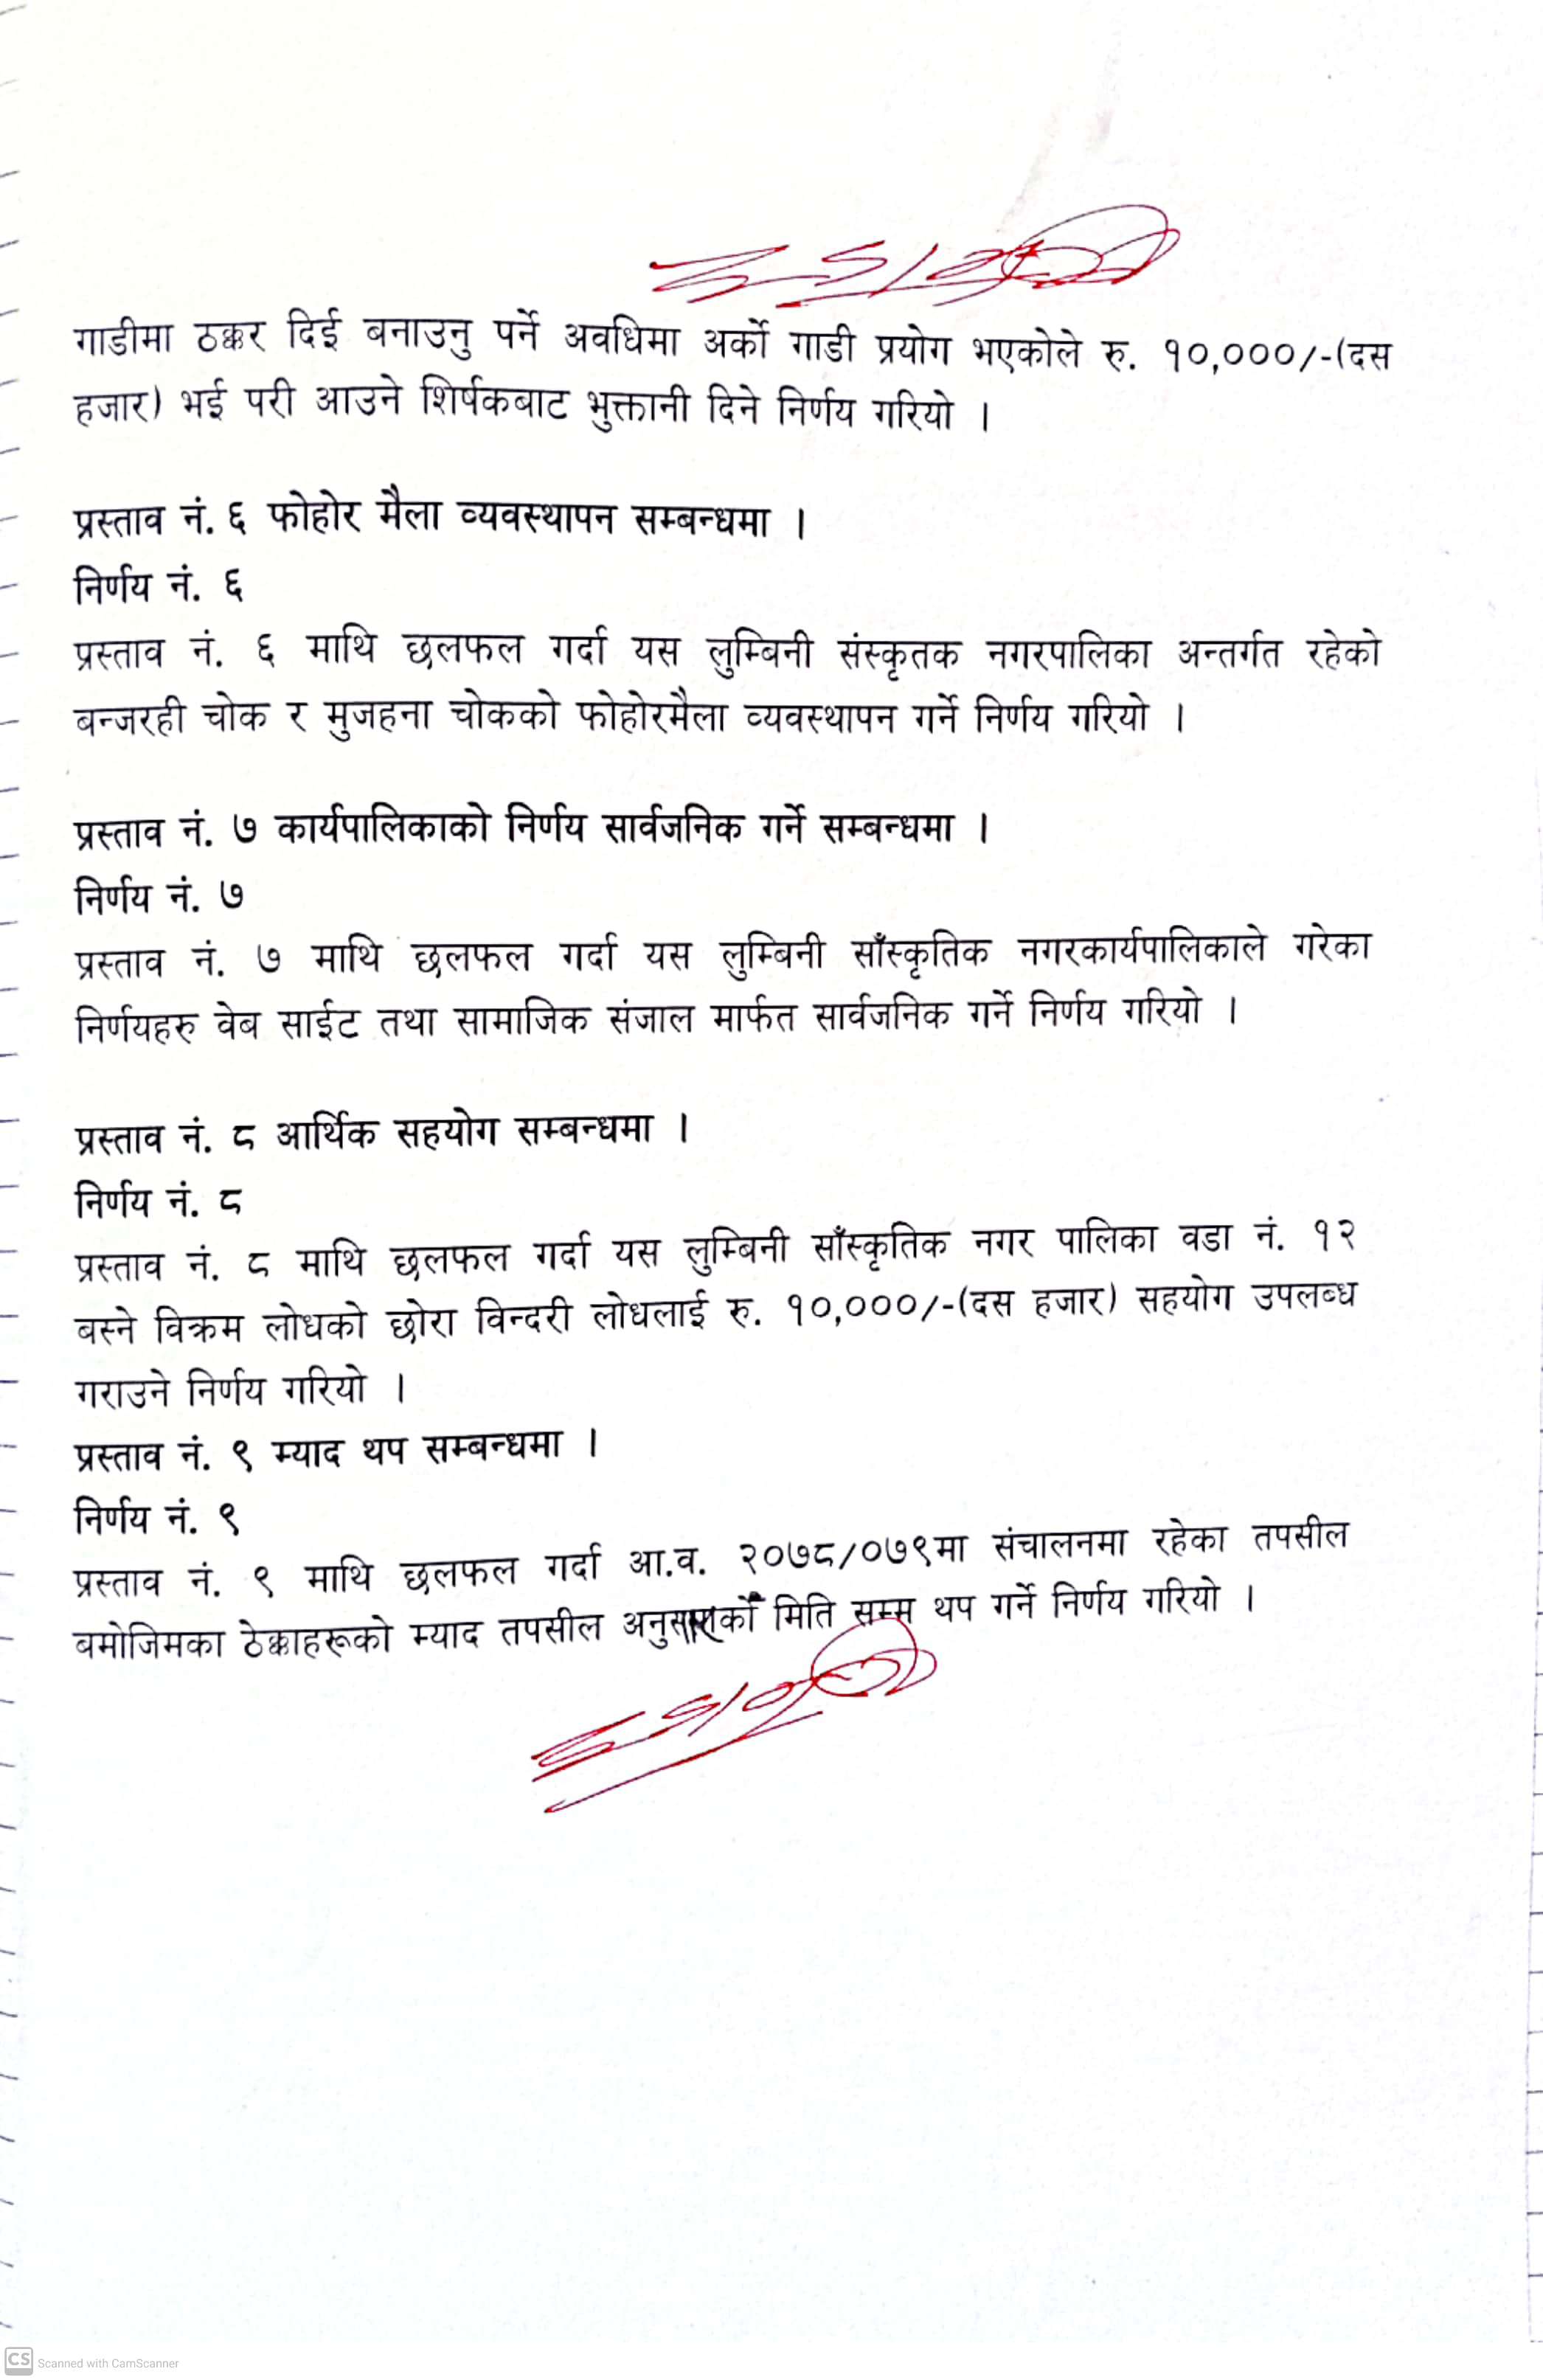 गाडीमा ठक्कर दिई बनाउनु पर्ने अवधिमा अर्को गाडी प्रयोग भएकोले रु. १०,०००/-(दस
हजार) भई परी आउने शिर्षकबाट भुक्तानी दिने निर्णय गरियो ।
प्रस्ताव नं. ६ फोहोर मैला व्यवस्थापन सम्बन्धमा ।
निर्णय नं. ६
प्रस्ताव नं. ६ माथि छलफल गर्दा यस लुम्बिनी संस्कृतक नगरपालिका अन्तर्गत रहेको
बन्जरही चोक र मुजहना चोकको फोहोरमैला व्यवस्थापन गर्ने निर्णय गरियो ।
प्रस्ताव नं. ७ कार्यपालिकाको निर्णय सार्वजनिक गर्ने सम्बन्धमा ।
निर्णय नं. ७
प्रस्ताव नं. ७ माथि छलफल गर्दा यस लुम्बिनी साँस्कृतिक नगरकार्यपालिकाले गरेका
निर्णयहरु वेब साईट तथा सामाजिक संजाल मार्फत सार्वजनिक गर्ने निर्णय गरियो ।
प्रस्ताव नं. ८ आर्थिक सहयोग सम्बन्धमा ।
निर्णय नं. ८
प्रस्ताव नं. ८ माथि छलफल गर्दा यस लुम्बिनी साँस्कृतिक नगर पालिका वडा नं. १२
बस्ने विक्रम लोधको छोरा विन्दरी लोधलाई रु. १०,०००/-(दस हजार) सहयोग उपलब्ध
गराउने निर्णय गरियो ।
प्रस्ताव नं. ९ म्याद थप सम्बन्धमा ।
निर्णय नं. ९
प्रस्ताव नं. ९ माथि छलफल गर्दा आ.व. २०७८/०७९मा संचालनमा रहेका तपसील
बमोजिमका ठेक्काहरूको म्याद तपसील मिति सम्म थप गर्ने निर्णय गरियो ।
CS Scanned with CamScanner